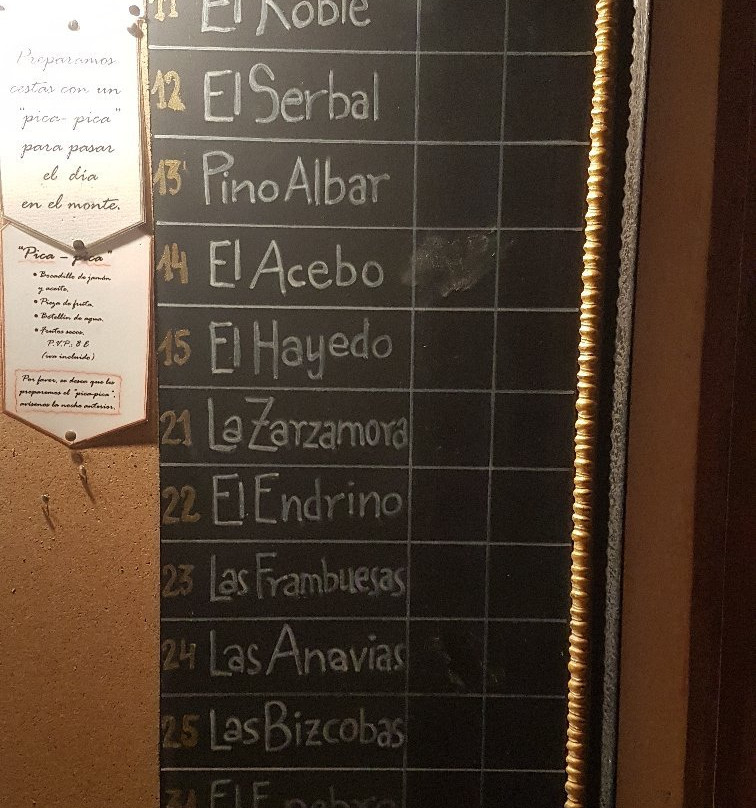 Preparamos
cestas con un
"pica-pica"
para pasar
el día
en el monte.
"Pica - pica"
• Bocadillo de jamón
y aceite.
• Pieza de fruta.
• Botellín de agua.
• Frutos secos.
P.V.P.: 8 €
(iva incluido)
Por favor, si desea que les
preparemos el "pica-pica",
avísenos la noche anterior.
11 El Roble
12 El Serbal
13 Pino Albar
14 El Acebo
15 El Hayedo
21 La Zarzamora
22 El Endrino
23 Las Frambuesas
24 Las Anavias
25 Las Bizcobas
El Enebro